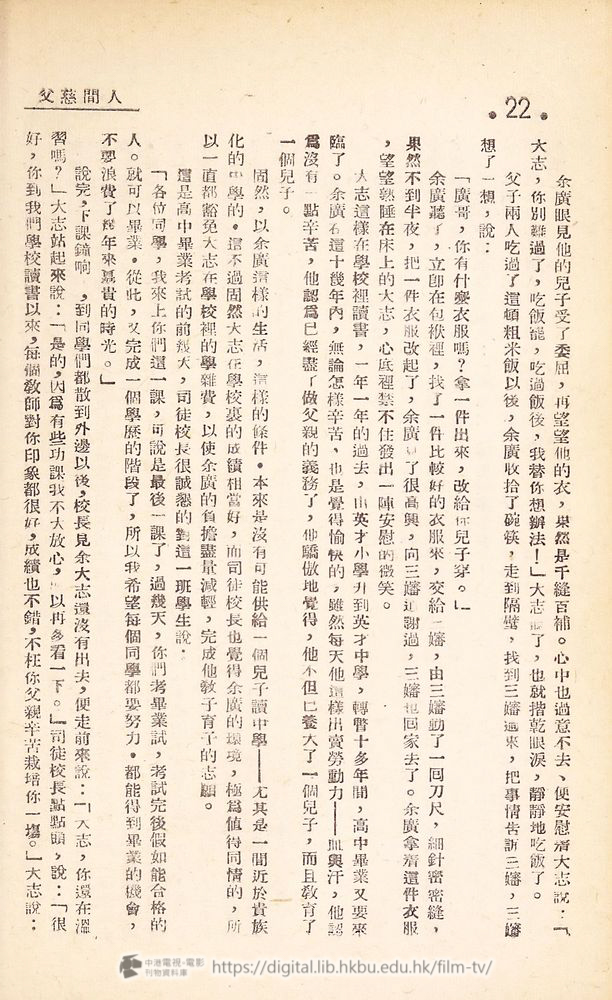 父慈間人
•22•
余廣眼見他的兒子受了委屈，再望望他的衣，果然是千縫百補。心中也過意不去、便安慰着大志說：「
大志，你別難過了，吃飯罷，吃過飯後，我替你想辦法！」大志聽了，也就揩乾眼淚，靜靜地吃飯了。
父子兩人吃過了這頓粗米飯以後，余廣收拾了碗筷，走到隔壁，找到三嬸過來，把事情告訴三嬸，三嬸
想了一想，說：
「廣哥，你有什麼衣服嗎？拿一件出來，改給你兒子穿。」
余廣聽了，立卽在包袱裡，找了一件比較好的衣服來，交給三嬸，由三嬸動了一回刀尺，細針密密縫，
果然不到半夜，把一件衣服改起了，余廣了很高興，向三嬸道謝過，三嬸也回家去了。余廣拿着這件衣服
，望望熟睡在床上的大志，心底裡禁不住發出一陣安慰的微笑。
大志這樣在學校裡讀書，一年一年的過去，由英才小學升到英才中學，轉瞥十多年間，高中畢業又要來
臨了。余廣在這十幾年內，無論怎樣辛苦、也是覺得愉快的，雖然每天他這樣出賣勞動力——血與汗，他認
爲沒有一點辛苦，他認爲已經盡了做父親的義務了，他驕傲地覺得，他不但已養大了一個兒子，而且敎育了
一個兒子。
固然，以余廣這樣的生活，這樣的條件。本來是沒有可能供給一個兒子讀中學——尤其是一間近於貴族
化的中學的。這不過固然大志在學校裏的成績相當好，而司徒校長也覺得余廣的環境，極爲値得同情的，所
以一直都豁免大志在學校裡的學雜費，以使余廣的負擔盡量減輕，完成他敎子育子的志願。
這是高中畢業考試的前幾天，司徒校長很誠懇的對這一班學生說：
「各位同學，我來上你們這一課，可說是最後一課了，過幾天，你們考畢業試，考試完後假如能合格的
人。就可以畢業。從此，又完成一個學歷的階段了，所以我希望每個同學都要努力。都能得到畢業的機會，
不要浪費了幾年來寶貴的時光。」
說完，下課鐘响，到同學們都散到外邊以後，校長見余大志還沒有出去，便走前來說：「大志，你還在溫
習嗎？」大志站起來說：「是的，因爲有些功課我不大放心，以再多看一下。」司徒校長點點頭，說：「很
好，你到我們學校讀書以來，每個敎師對你印象都很好，成績也不錯，不枉你父親辛苦栽培你一塲。」大志說：
中港電視·電影
刊物資料庫
https://digital.lib.hkbu.edu.hk/film-tv/